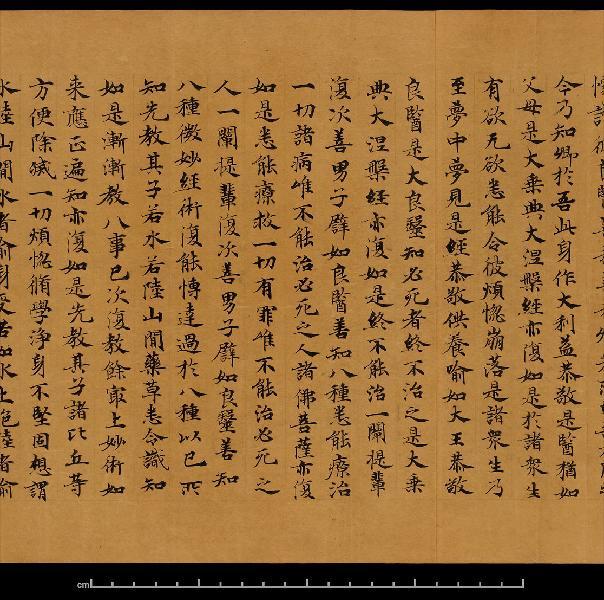 今乃知卿於吾此身作大利益恭敬是醫猶如
父母是大乘典大涅槃經亦復如是於諸眾生
有欲无欲悉能令彼煩惱崩落是諸眾生乃
至夢中夢見是經恭敬供養喻如大王恭敬
良醫是大良醫知必死者終不治之是大乘
典大涅槃經亦復如是終不能治一闡提輩
復次善男子譬如良醫善知八種悉能療治
一切諸病唯不能治必死之人諸佛菩薩亦復
如是悉能療救一切有罪唯不能治必死之
人一闡提輩復次善男子譬如良醫善知
八種微妙經術復能博達過於八種以已所
知先教其子若水若陸山澗藥草悉令識知
如是漸漸教八事已次復教餘最上妙術如
來應正遍知亦復如是先教其子諸比丘等
方便除滅一切煩惱脩學淨身不堅固想謂
水陸山澗水者喻身受苦如水上泡陸者喻
cm